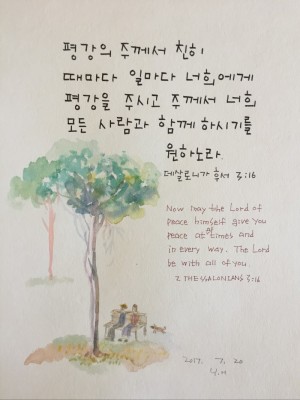 평강의 주께서 친히
때마다 일마다 너희에게
평강을 주시고 주께서 너희
모든 사람과 함께 하시기를
원하노라.
데살로니가 후서 3:16
Now may the Lord of
peace himself give you
peace at all times and
in every way. The Lord
be with all of you.
2 THESSALONIANS 3:16
2017. 7. 20